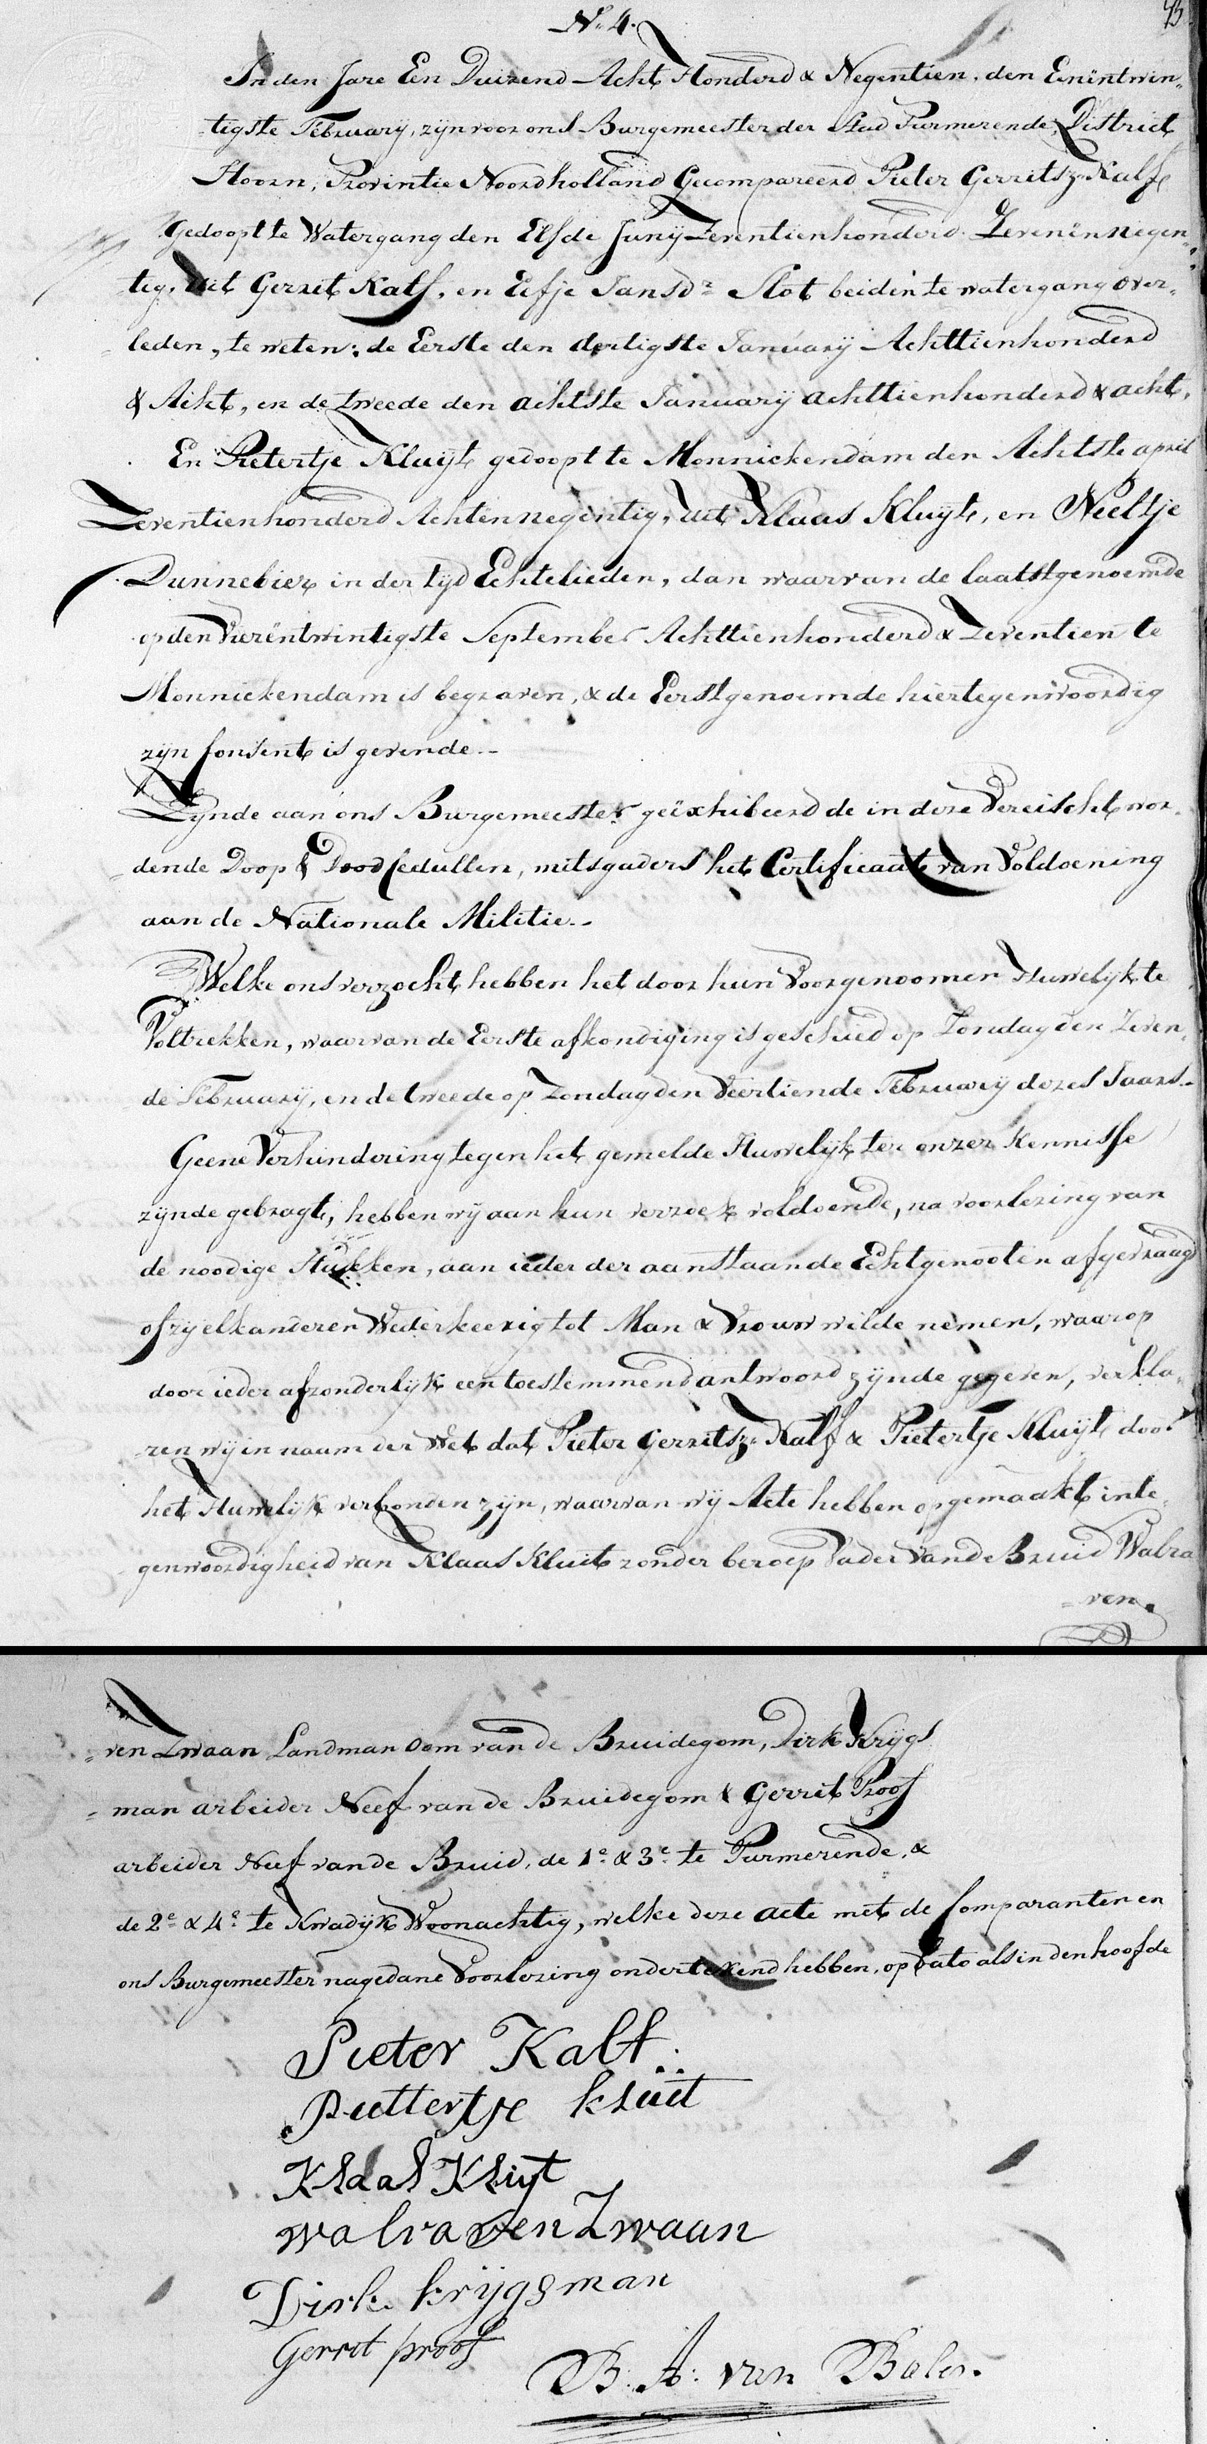 No. 4.
In den Jare Een Duizend Acht Honderd & Negentien, den Eenëntwin„
„tigste February, zijn voor ons Burgemeester der Stad Purmerende, District
Hoorn, Provintie Noordholland Gecompareerd Pieter Gerritsz: Kalf
Gedoopt te Watergang den Elfde Junij Zeventienhonderd Zevenënnegen„
tig, Uit Gerrit Kalf, en Eefje Jansdr Slot beiden te watergang over„
„leden, te weten: de Eerste den dertigste January Achttienhonderd
& Acht, en de tweede den achtste January achttienhonderd & acht,
En Pietertje Kluijt gedoopt te Monnickendam den Achtste april
Zeventienhonderd Achtennegentig, uit Klaas Kluijt, en Neeltje
Dunnebier in der tijd Echtelieden, dan waarvan de laatstgenoemde
op den Vierëntwintigste September Achttienhonderd & Zeventien te
Monnickendam is begraven, & de Eerstgenoemde hiertegenwoordig
zijn Consent is gevende.-
Zijnde aan ons Burgemeester geëxhibeerd de in deze Vereischt wor„
„dende Doop & Dood Cedullen, mitsgaders het Certificaat van Voldoening
aan de Nationale Militie.-
Welke ons verzocht hebben het door hun Voorgenoomen Huwelijk te
Voltrekken, waarvan de Eerste afkondiging is geschied op Zondag den Zeven„
de February, en de tweede op Zondag den Veertiende February dezes Jaars.-
Geene Verhindering tegen het gemelde Huwelijk ter onzer Kennisse
zijnde gebragt, hebben wij aan hun verzoek voldoende, na voorlezing van
de noodige Stukken, aan ieder der aanstaande Echtgenooten afgevraagd
of zij elkanderen Wederkeerig tot Man & Vrouw wilde nemen, waarop
door ieder afzonderlijk een toestemmend antwoord zijnde gegeven, verkla„
„ren wij in naam der Wet dat Pieter Gerritsz: Kalf & Pietertje Kluijt door
het Huwelijk verbonden zijn, waarvan wij Acte hebben opgemaakt in te„
genwoordigheid van Klaas Kluit zonder beroep Vader Van de Bruid Walra
„ven.
„ven Zwaan Landman Oom van de Bruidegom, Dirk Krijgs
„man arbeider Neef van de Bruidegom & Gerrit Proof
arbeider Neef van de Bruid, de 1e & 3e te Purmerende, &
de 2e & 4e te Kwadijk Woonachtig, welke deze acte met de Comparanten en
ons Burgemeester na gedane Voorlezing ondertekend hebben, op dato als in den hoofde
Pieter Kalf
Piettertje kluit
Klaas Kluyt
walraven Zwaan
Dirk krijgsman
Gerrit proof
B: A: van Balen.